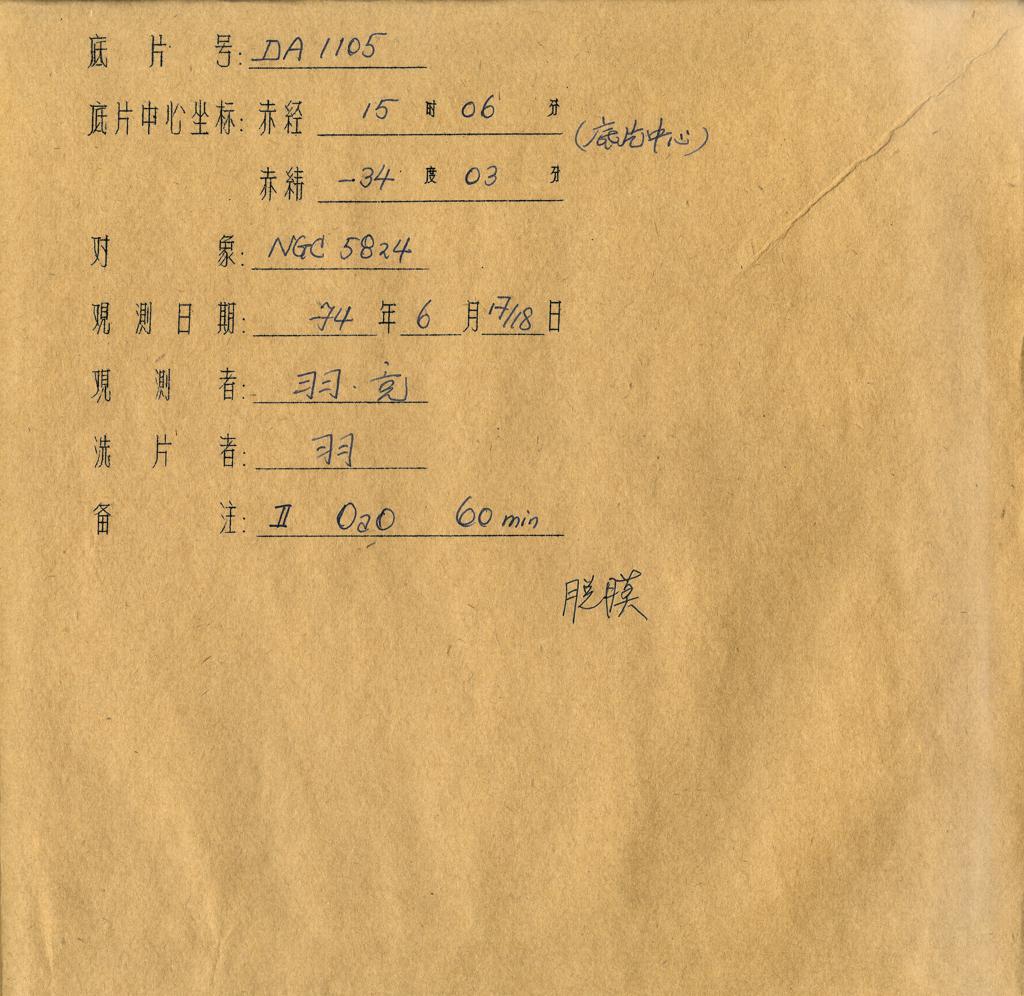 底片号: DA 1105
底片中心坐标: 赤经 15 时 06 分 (底片中心)
赤纬 -34 度 03 分
对象: NGC 5824
观测日期: 74 年 6 月 17/18 日
观测者: 羽·亮
洗片者: 羽
备注: II OaO 60 min
脱膜